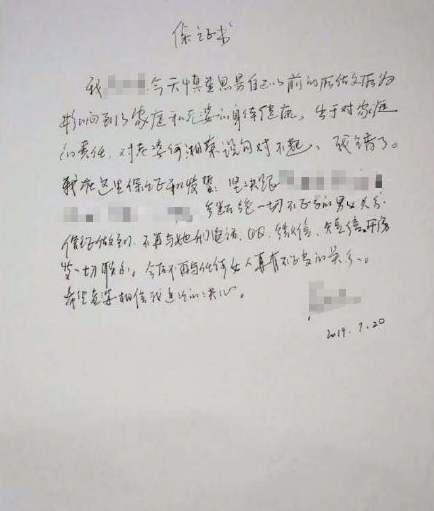 保证书
我 今天慎重思量自己以前的所做所为
影响到了家庭和老婆的身体健康，出于对家庭
的责任，对老婆何湘 说句对不起，我错了。
我在这里保证和发誓，坚决跟
多断绝一切不正当的男女关系
保证做到，不再与她们电话、QQ、微信、短信、开房
等一切联系。今后不再与任何女人再有不正当的关系。
希望老婆相信我这次的决心。
2019.7.20